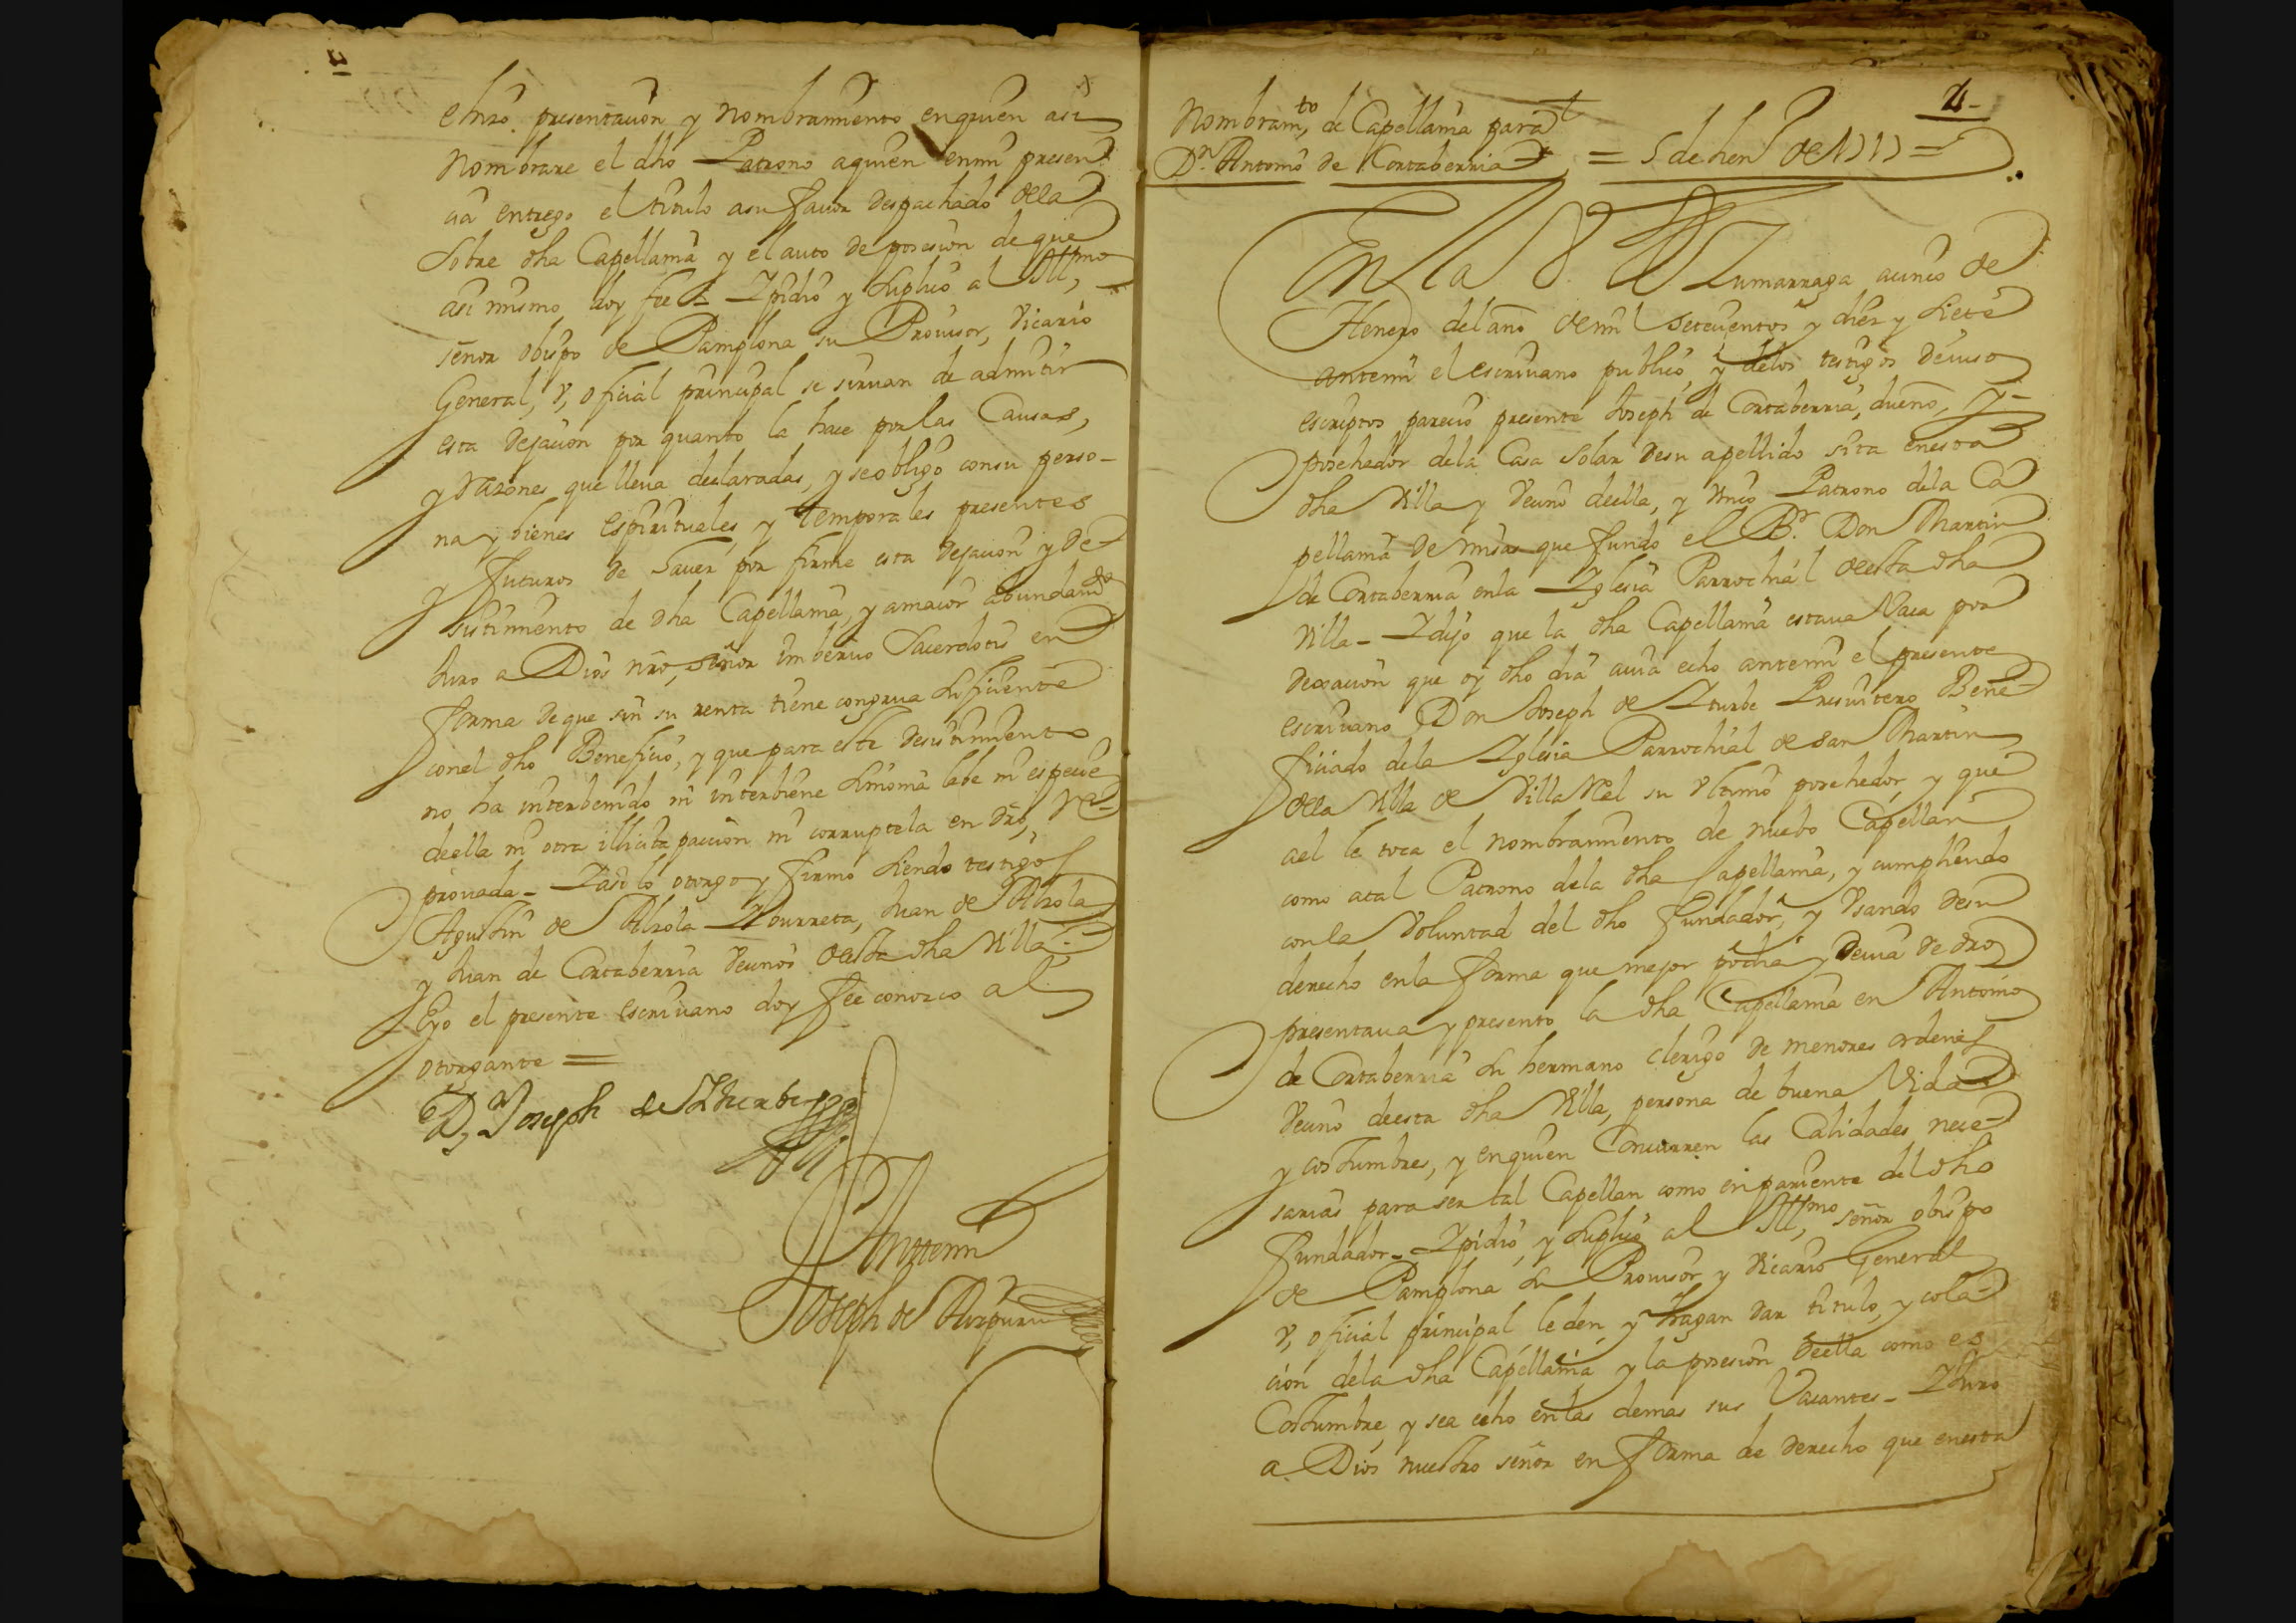 e hizo presentacion y nombramiento en quien asi
nombrare el dho Patrono a quien en mi presen
cia entrego el titulo a su favor despachado de la
sobre dha Capellania y el auto de posesion de que
asi mismo doy fee = Y pidio y suplico al Ill,mo
señor obispo de Pamplona su Provisor, Vicario
General, y, oficial principal se sirvan de admitir
esta dejacion por quanto la hace por las Causas,
y razones que lleva declaradas, y se obligo con su perso-
na y bienes espirituales, y temporales presentes
y futuros de haver por firme esta dejacion y de-
sistimiento de dha Capellania, y a maior abundam,to
Juro a Dios nro, señor in berbo Sacerdotis en
forma de que sin su renta tiene congrua suficiente
con el dho Beneficio, y que para este desistimiento
no ha interbenido ni interbiene simonia labe ni especie
de ella ni otra illicita paccion ni corruptela en dro, re-
provada - Y asi lo otorgo y firmo siendo testigos
Agustin de Alzola Ydurreta, Juan de Alzola
y Juan de Cortaberria Vecinos de esta dha Villa =
E yo el presente escrivano doy fee conozco al
otorgante =
Dn, Joseph de Yturbe
Ante mi
Joseph de Aizpuru
4-
Nombram,to de Capellania para
Dn. Antonio de Cortaberria = 5 de hen.o de 1717 =
En la V.a de Zumarraga a cinco de
Henero del año de mil setecientos y diez y siete
ante mi el escrivano publico y de los testigos de iuso
escriptos parecio presente Joseph de Cortaberria, dueño, y-
posehedor de la Casa Solar de su apellido sita en esta
dha Villa y Vecino de ella, y Unico Patrono de la Ca
pellania de misas que fundo el Br. Don Martin
de Cortaberria en la Yglesia Parrochial de esta dha
Villa - Y dijo que la dha Capellania estava Vaca por
dexacion que oy dho dia avia echo ante mi el presente
escrivano Don Joseph de Yturbe Presvitero Bene-
ficiado de la Yglesia Parrochial de san Martin
de la Villa de Villa Rl su Ultimo posehedor, y que
a el le toca el nombramiento de nuebo Capellan
como a tal Patrono de la dha Capellania, y cumpliendo
con la Voluntad del dho fundador, y Usando de su
derecho en la forma que mejor podia y devia de dro
presentava y presento la dha Capellania en Antonio
de Cortaberria su hermano clerigo de menores ordenes
Vecino de esta dha Villa, persona de buena Vida
y costumbres, y en quien Concurren las Calidades nece-
sarias para ser tal Capellan como en pariente del dho
fundador - Y pidio, y suplico al Ill,mo señor obispo
de Pamplona su Provisor y Vicario General
y, oficial principal le den, y hagan dar titulo, y cola-
cion de la dha Capellania y la posesion de ella como es
Costumbre, y se a echo en las demas sus Vacantes - Y Juro
a Dios nuestro señor en forma de derecho que en esta